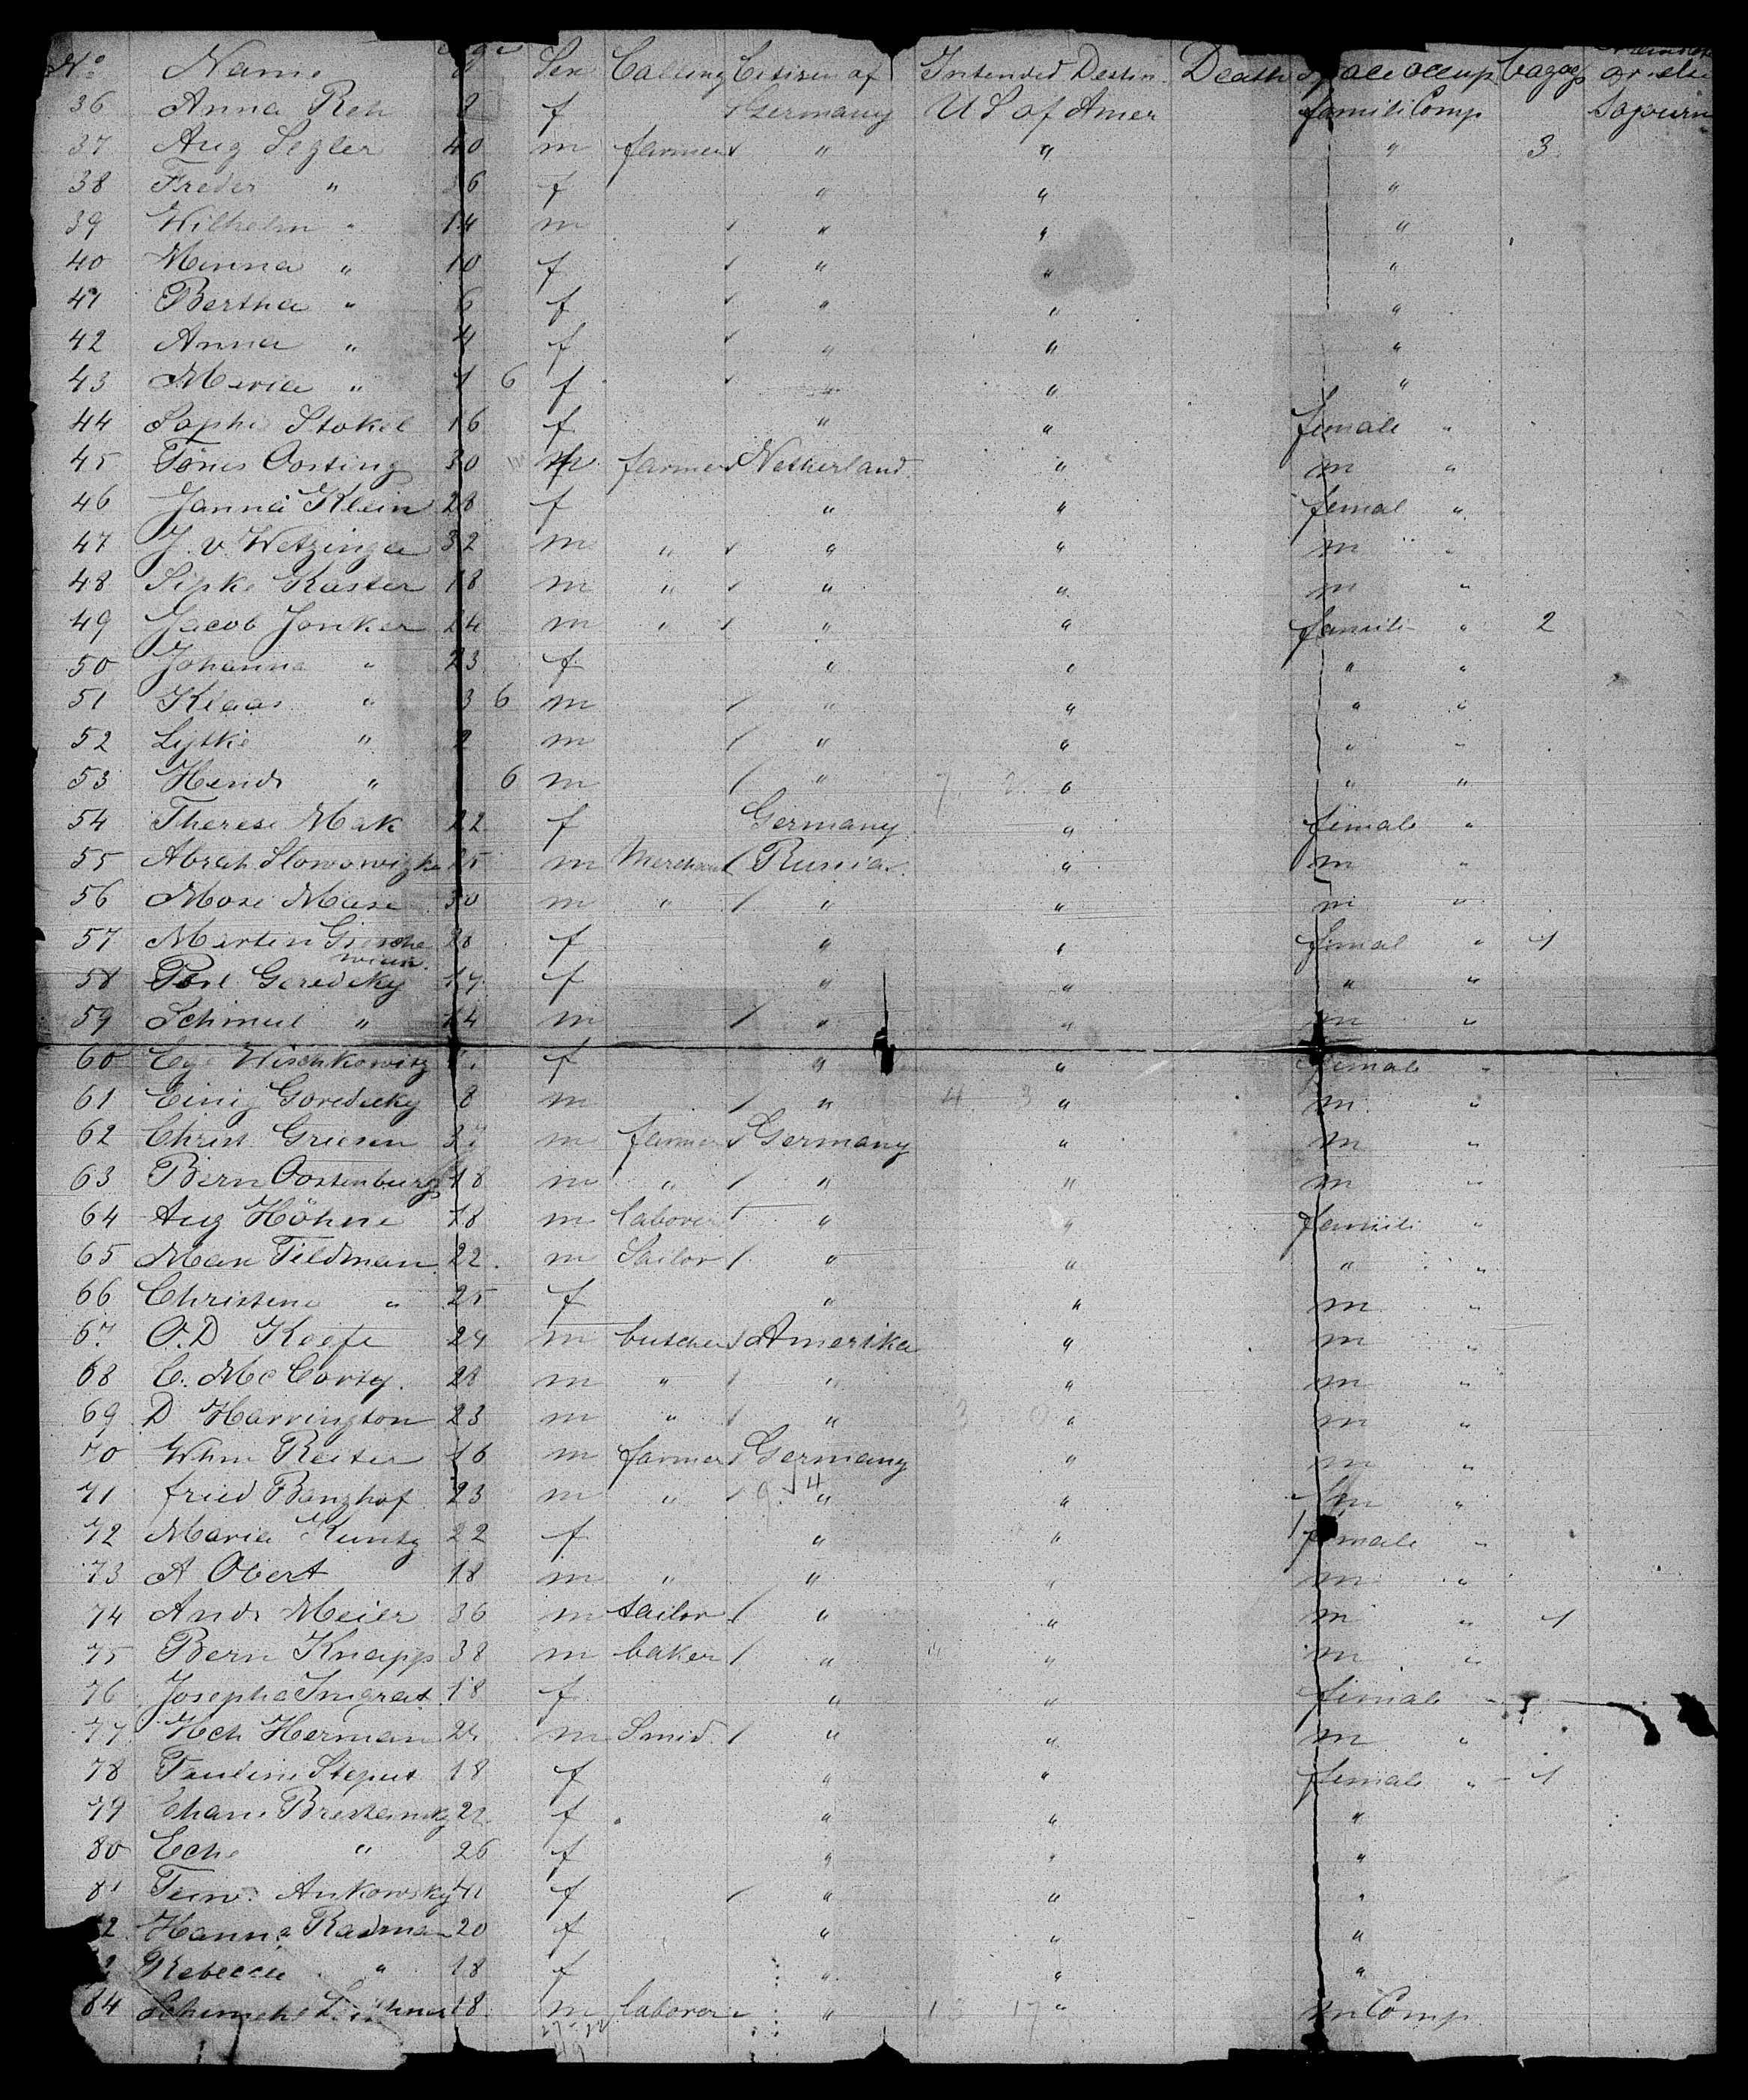 No Name Age Sex Calling Citizen of Intended Destin. Death Space occup. bagage or else
36 Anna Reh f Germany U S of Amer famili Comp Sojourn
37 Aug Segler 40 m farmer " " " 3
38 Freder " 36 f " " "
39 Wilhelm " 14 m " " "
40 Minna " 10 f " " "
41 Bertha " 6 f " " "
42 Anna " 4 f " " "
43 Maria " 1 6 f " " "
44 Sophi Stokel 16 f " " female "
45 Tönis Oosting 30 m farmer Netherland " m "
46 Janna Klein 28 f " " femal "
47 J. v. Wetzinga 32 m " " " m "
48 Sipke Kaster 18 m " " " m "
49 Jacob Jonker 24 m " " " famili " 2
50 Johanna " 23 f " " " "
51 Klaas " 3 6 m " " " "
52 " 2 m " " " "
53 Hendr " 6 m " " " "
54 Therese Mak 22 f Germany " female "
55 Abrah Slowowizh 25 m Merchant Russia " m "
56 Mose Mase 30 m " " " m "
57 Martin 28 f " " femal " 1
58 Goredeky 17 f " " " "
59 Schmul " 14 m " " m "
60 Wischkowitz f " " female "
61 Einig Goredecky 8 m " " m "
62 Christ Griesen 37 m farmer Germany " m "
63 Bern Oostenburg 18 m " " " m "
64 Aug Höhne 18 m laborer " " famili "
65 Max Feldman 22 m Sailor " " " "
66 Christine " 25 f " " m "
67 O. D Keefe 24 m butcher Amerika " m "
68 C. Mc Corty 28 m " " " m "
69 D Harrington 23 m " " " m "
70 Whm Reiter 16 m farmer Germany " m "
71 fried Banzhof 23 m " " " m "
72 Maria Kuntz 22 f " " female "
73 A Obert 18 m " " " m "
74 Andr Meier 36 m tailor " " m " 1
75 Bern Knapp 38 m baker " " m "
76 Josepha Ingrat 18 f " " female "
77 Hch Herman 24 m Smid " " m "
78 Pauline Steput 18 f " " female " 1
79 22 f " " "
80 Eche " 26 f " " "
81 Ankowsky 41 f " " "
82 Hanna Radman 20 f " " "
Rebecca " 18 f " " "
84 18 m laborer " " m Comp